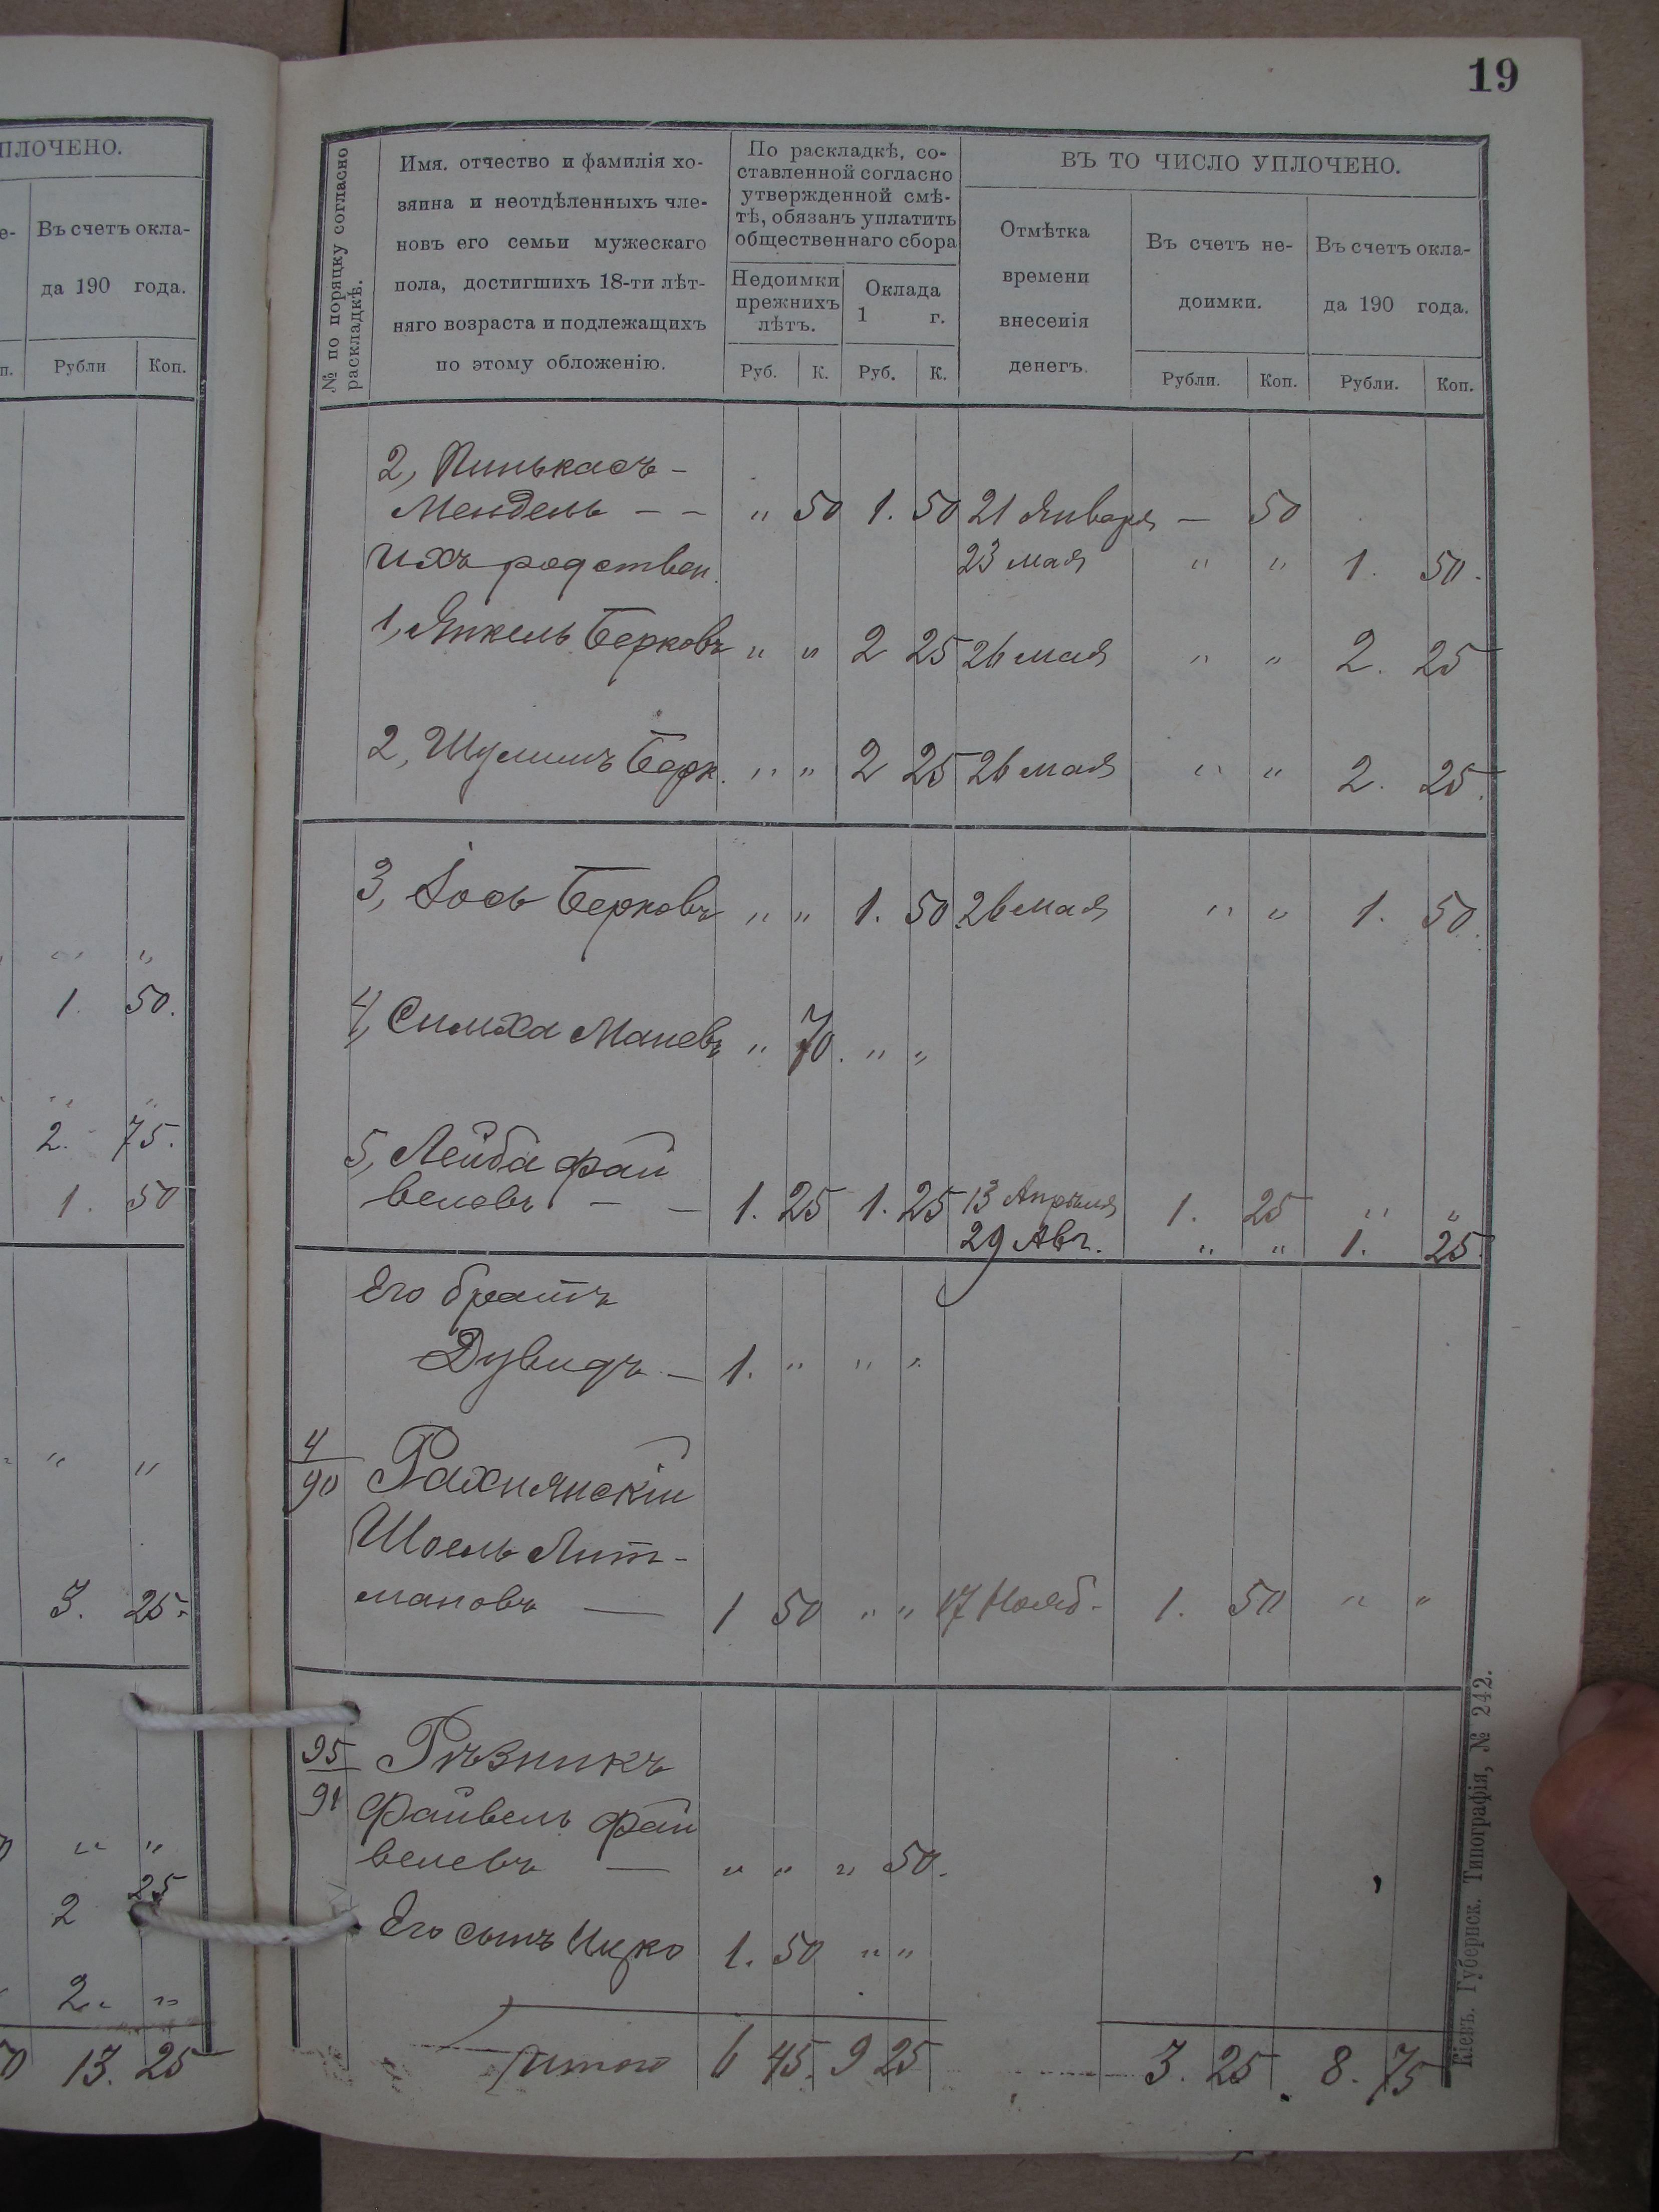 19
ПЛОЧЕНО.
е-
Въ счетъ окла-
да 190 года.
п.
Рубли
Коп.
„ „
1. 50.
„ „
2. 75.
1. 50
„ „
3. 25.
„ „
2 25
2 „ „
13. 25
№ по поряцку согласно
раскладкѣ.
Имя. отчество и фамилія хо-
зяина и неотдѣленныхъ чле-
новъ его семьи мужескаго
пола, достигшихъ 18-ти лѣт-
няго возраста и подлежащихъ
по этому обложенію.
По раскладкѣ, со-
ставленной согласно
утвержденной смѣ-
тѣ, обязанъ уплатить
общественнаго сбора
Недоимки
прежнихъ
лѣтъ.
Оклада
1 г.
Руб. К. Руб. К.
ВЪ ТО ЧИСЛО УПЛОЧЕНО.
Отмѣтка
времени
внесенія
денегъ.
Въ счетъ не-
доимки.
Въ счетъ окла-
да 190 года.
Рубли. Коп. Рубли. Коп.
2, Пинькасъ-
Мендель - - „ 50 1. 50 21 Января - 50
Ихъ родствен. 23 мая „ „ 1. 50.
1, Янкель Берковъ „ „ 2 25 26 мая „ „ 2. 25
2, Шулимъ Берк. „ „ 2 25 26 мая „ „ 2. 25.
3, Іось Берковъ „ „ 1. 50 26 мая „ „ 1. 50.
4, Симха Маневъ „ 70. „ „
5, Лейба Фай
велевъ - - 1. 25 1. 25 13 Апрѣля 1. 25 „ „
29 Авг. „ „ 1. 25.
Его братъ
Дувидъ - 1. „ „ „
4/90 Рахнянскій
Шоель Лит-
мановъ — 1 50 „ „ 17 Нояб. 1. 50 „ „
95/91 Рѣзникъ
Файвель Фай
велевъ — „ „ „ 50.
Его сынъ Ицко 1. 50 „ „
Итого 6 45. 9 25 3. 25. 8. 75
Кіевъ. Губернск. Типографія, № 242.